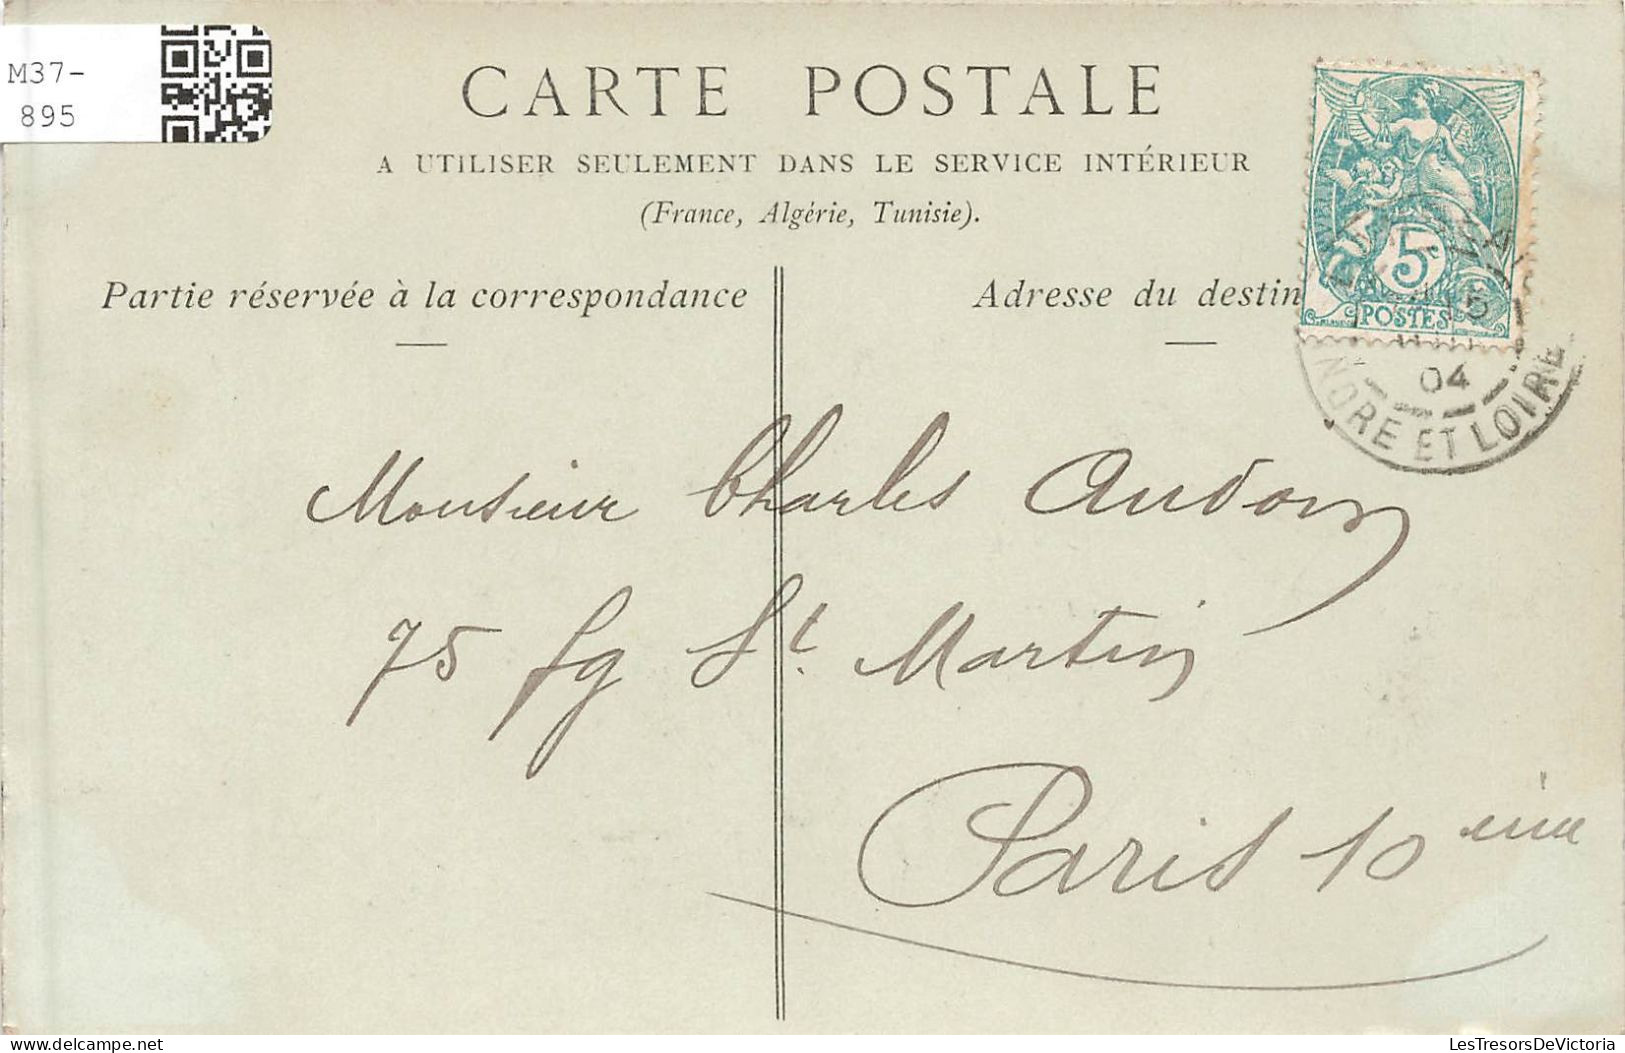 M37-
895
CARTE POSTALE
A UTILISER SEULEMENT DANS LE SERVICE INTÉRIEUR
(France, Algérie, Tunisie).
Partie réservée à la correspondance
Adresse du destin
5c
POSTES
15
04
INDRE ET LOIRE
Monsieur Charles Audoin
75 fg St. Martin
Paris 10 eme
delcampe.net
LesTresorsDeVictoria